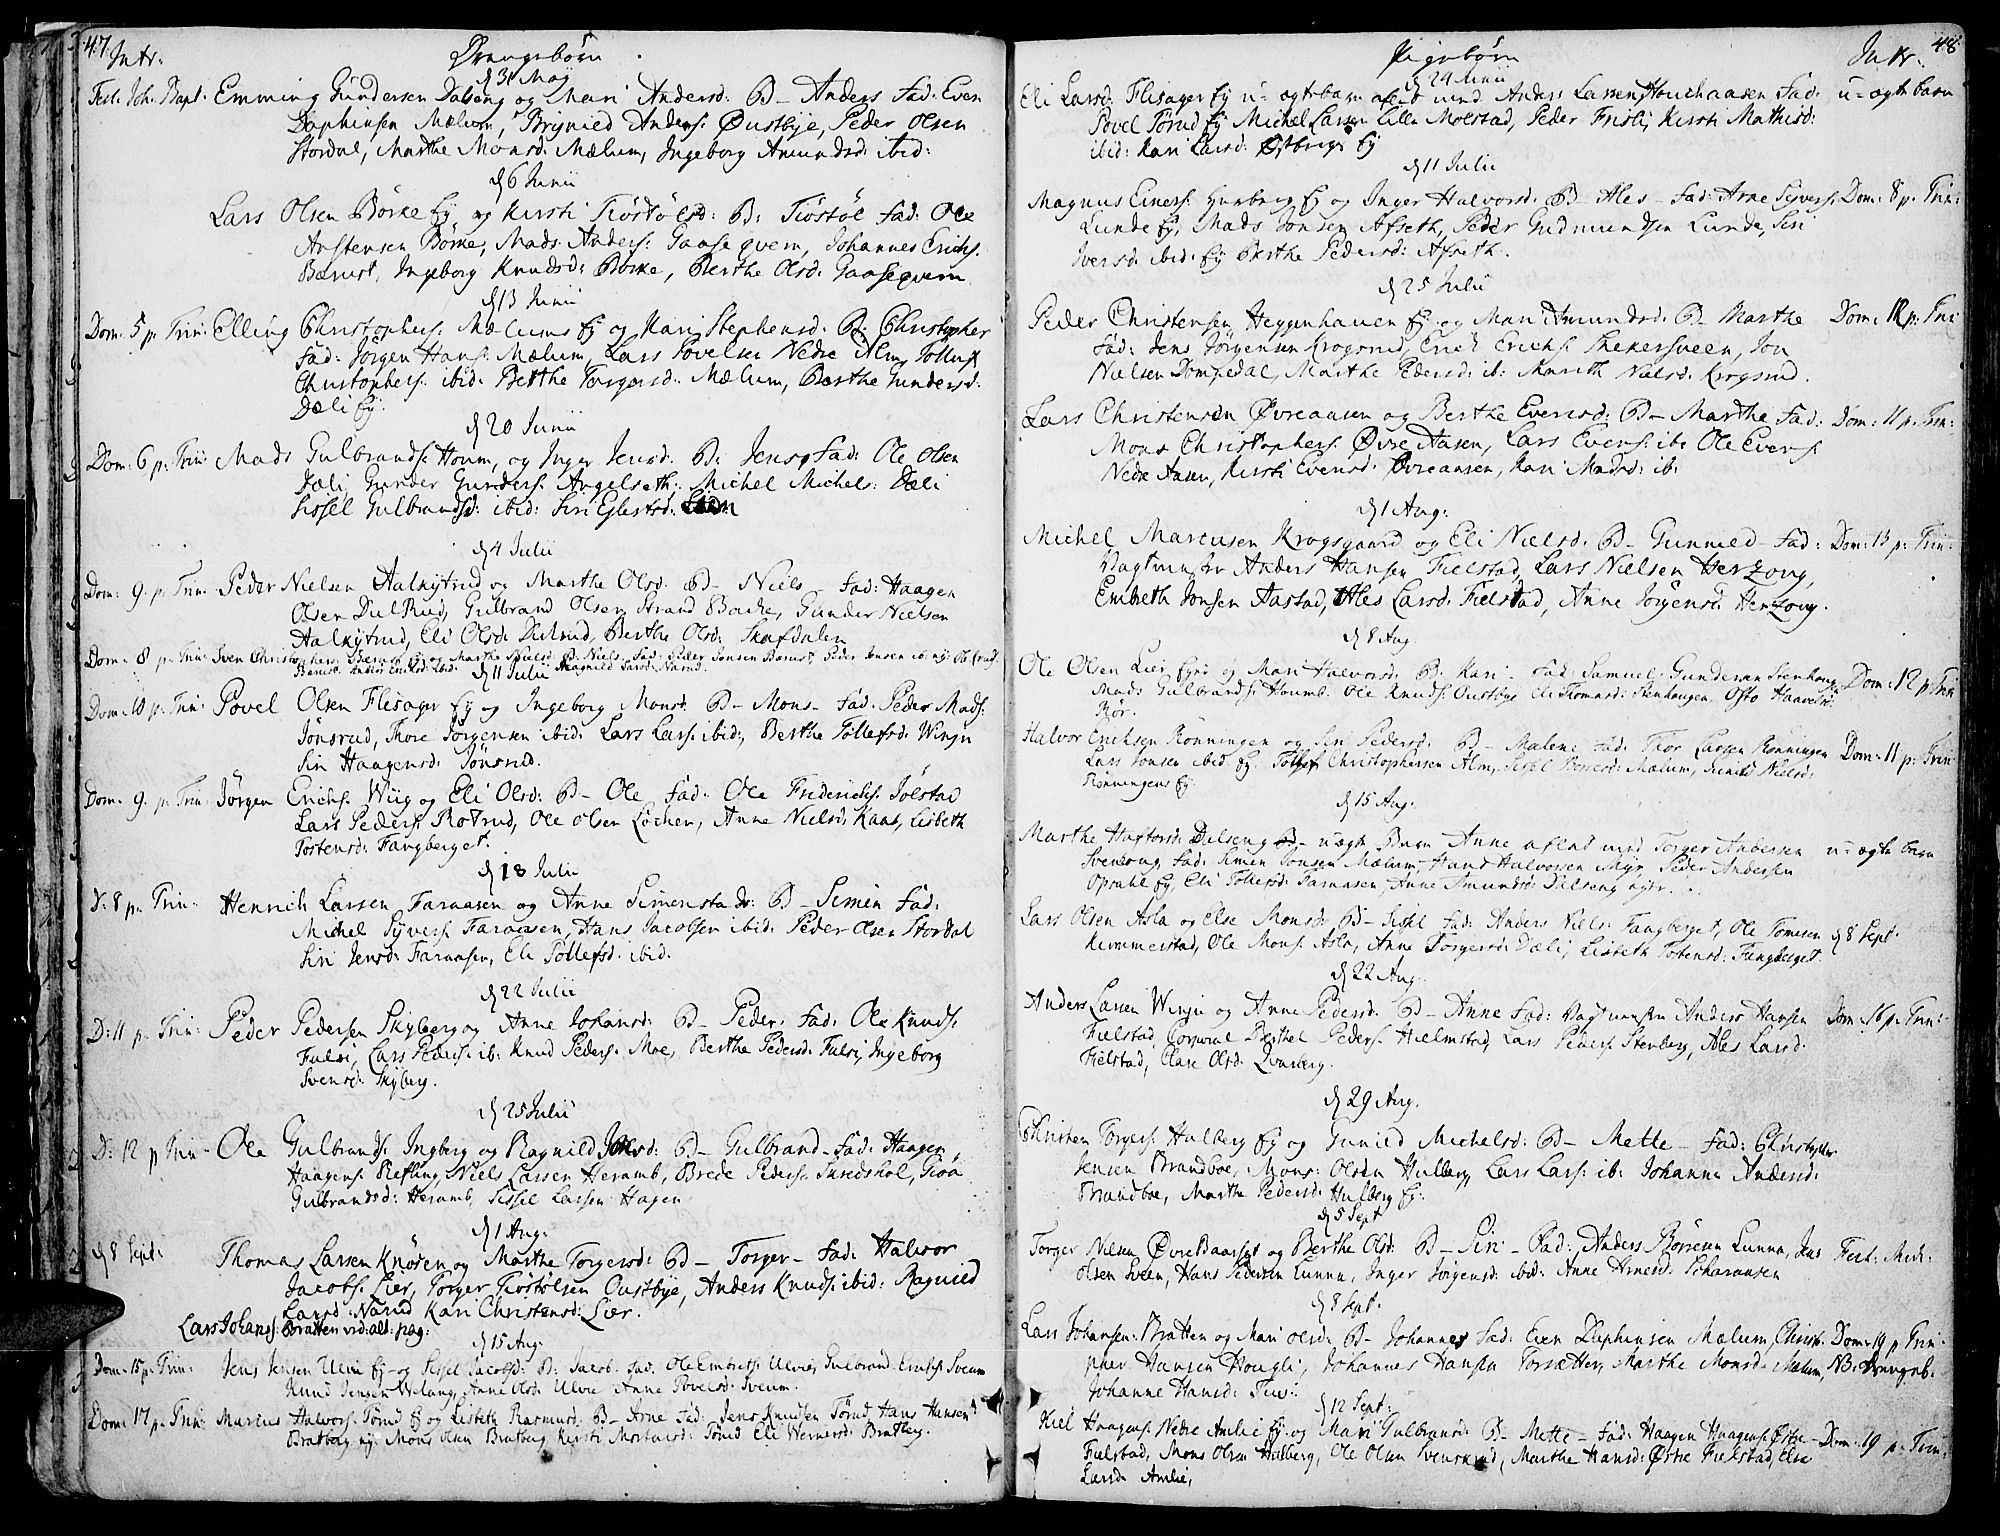 47.
Intr. Drengebörn
d 31 Maij
Fest. Joh. Bapt. Emming Gundersen Dalseng og Mari Andersd. B– Anders Fad. Even
Daphinsen Mælum, Brynild Anders. Oustbye, Peder Olsen
Stordal, Marthe Monsd. Mælum, Ingeborg Amundsd. ibid:
d 6 Junii
Lars Olsen Börke Ey og Kirsti Tiöstölsd: B: Tiöstöl Fad: Ole
Anstensen Börke, Mads Anders: Gaaseqvern, Johannes Erichs.
Berust, Ingeborg Knudsd: Börke, Berthe Olsd. Gaaseqvern
d 13 Junii
Dom: 5 p. Trin: Elling Christophers. Mælums Ey og Kari Stephensd. B. Christopher
Fad: Jörgen Hans: Mælum, Lars Povelsen Nedre Alm, Tolluf
Christophers. ibid. Berthe Torgersd: Mælum, Berthe Gundersd:
Dæli Ey.
d 20 Junii
Dom: 6 p: Trin: Mads Gulbrands: Houm, og Inger Jensd. B: Jens, Fad: Ole Olsen
Dæli, Gunder Gunders. Angelseth: Michel Michels: Dæli
Sissel Gulbrandsd: ibid: Siri Eglestsd:
d 4 Julii
Dom: 9. p. Trin: Peder Nielsen Aalkijtrud og Marthe Olsd. B– Niels – Fad: Haagen
Olsen DulRud, Gulbrand Olsen Strand Backe, Gunder Nielsen
Aalkijtrud, Eli Olsd. Dulrud, Berthe Olsd. Skafdalen
Dom: 8 p. Trin: Sven Christophers. Berust Ey og Marthe Nielsd. B. Niels. Fad: Peder Jonsen Berust, Peder Jensen ib:
d 11 Julii
Dom: 10 p: Trin: Povel Olsen Flisager Ey og Ingeborg Monsd. B– Mons– Fad: Peder Mads:
Jönsrud, Thore Jörgensen ibid: Lars Lars: ibid:, Berthe Tollefsd. Winju
Siri Haagensd. Jönsrud.
Dom: 9. p. Trin: Jörgen Erichs. Wiig og Eli Olsd: B– Ole Fad: Ole Friderichs. Jölstad
Lars Peders. Rotrud, Ole Olsen Löchen, Anne Nielsd. Kaas, Lisbeth
Tostensd: Fangberget.
d 18 Julii
D: 8 p. Trin: Henrich Larsen Faraasen og Anne Simenstadr: B– Simen Fad:
Michel Syvers. Faraasen, Hans Jacobsen ibid: Peder Olsen Stordal
Siri Jensd: Faraasen, Eli Tollefsd. ibid.
d 22 Julii
D: 11 p. Trin: Peder Pedersen Skyberg og Anne Johansd: B– Peder. Fad: Ole Knuds.
Fulsi, Lars Peders: ib: Knud Peders: Moe, Berthe Pedersd. Fulsi, Ingeborg
Svensd: Skyberg.
d 25 Julii
D: 12 p Trin: Ole Gulbrands. Ingberg og Ragnild B– Gulbrand– Fad: Haagen
Haagens: Refling, Niels Larsen Heramb, Brede Peders: Skredshol, Goa
Gulbrandsd: Heramb, Sissel Larsen Hagen
d 1 Aug:
d 8 Sept: Thomas Larsen Knösen og Marthe Torgersd: B– Torger– Fad: Halvor
Jacobs. Lier, Torger Tiöstölsen Oustbye, Anders Knuds. ibid: Ragnild
Larsd. Narud Kari Christensd: Lier.
Lars Johans: Bratten vid: alt: pag:
d 15 Aug:
Dom: 15 p: Trin: Jens Jensen Ulvi Ey og Sissel Jacobsd: B: Jacob: Fad: Ole Embrets. Ulve, Gulbrand Erichs. Sveum
Knud Jensen Wilang, Anne Olsd: Ulve Anne Povelsd. Sveum.
Dom: 17 p. Trin: Marius Halvors. Törud Ey og Lisbeth Rasmusd: B– Arne Fad: Jens Knudsen Törud Hans Hansen
Bratberg Ey. Mons Olsen Bratberg Kirsti Mortensd: Törud Eli Wernersd: Bratberg.
48
Pigebörn Intr.
d 24 Junii
Eli Larsd. Flisager Ey u=ægte barn aflet med Anders Larsen Houchaasen Fad: u=ægte barn
Povel Törud Ey Michel Larsen Lille Molstad, Peder Frisli, Kirsti Mathisd:
ibid: Kari Larsd: Ey
d 11 Julii
Magnus Einers: Ey og Inger Halvorsd. B– Ales– Fad: Arne Syvers: Dom: 8 p. Trin:
Lunde Ey, Mads Jonsen Afseth, Peder Gudmundsen Lunde, Siri
Iversd. ibid: Ey Berthe Pedersd: Afseth.
d 25 Julii
Peder Christensen Heggenhauen Ey og Mari Amundsd. B– Marthe Dom: 12 p: Trin
Fad: Jens Jörgensen Krogsrud Erich Erichs. Jon
Nielsen Dompedal, Marthe Pedersd: ib: Marith Nielsd. Krogsrud.
Lars Christensen Øvreaasen og Berthe Evensd: B– Marthe Fad: Dom: 11 p. Trin:
Mons Christophers: Øvre Aasen, Lars Evens: ib: Ole Evens
Nedre Aasen, Kirsti Evensd: Øvreaasen, Kari Madsd: ib:
d 1 Aug:
Michel Marcusen Krogsgaard og Eli Nielsd. B– Gunnild– Fad: Dom: 15 p: Trin:
Vagtmester Anders Hansen Fielstad, Lars Nielsen Herzoug,
Embreth Jonsen Aastad, Ales Larsd. Fielstad, Anne Jörgensd: Herzoug.
d 8 Aug
Ole Olsen Lier og Mari Halvorsd: B: Kari– Fad: Samuel Gundersen Stenhoug Dom: 12 p Trin
Mads Gulbrands: Houm: Ole Knuds: Oustbye Eli Thomasd: Stenhougen,
Rör.
Halvor Erichsen Rönningen og Siri Pedersd. B– Malene Fad: Thor Larsen Rönningen Dom: 11 p: Trin
Lars Jonsen ibid Ey. Tolluf Christophersen Alm, Sissel Mælum, Gunild Nielsd:
Rönningens Ey.
d 15 Aug:
Marthe Dalseng B– uægte Barn Anne aflet med Torger Andersen u=ægte barn
Svenskrug, Fad: Simen Jonsen Mælum, Knud Halvorsen Myr, Peder Andersen
Opsahl Ey, Eli Tollefsd: Faraasen, Anne Amundsd: Dalseng
Lars Olsen Asla og Else Monsd: B– Sissel Fad: Anders Niels: Fangberget, Ole Tomesen d 8 Sept.
Kemmerstad, Ole Mons. Asla, Anne Torgersd: Dæli, Lisbeth Tostensd: Fangberget
d 22 Aug.
Anders Larsen Winju og Anne Pedersd. B– Anne Fad: Vagtmester Anders Hansen Dom: 16 p. Trin:
Fielstad, Corporal Berthel Peders. Hielmstad, Lars Peders. Stenberg, Ales Larsd.
Fielstad, Olsd. Qvarberg.
d 29 Aug.
Christen Torgers: Hulberg Ey og Gunild Michelsd: B– Mette– Fad: Christopher
Jensen Brandboe, Mons: Olsen Hulberg, Lars Lars: ib: Johanna Andersd:
Brandboe, Marthe Pedersd: Hulberg Ey:
d 5 Sept
Torger Nielsen ØvreBaarset og Berthe Olsd: B– Siri– Fad: Anders Börresen Lunna, Jens Fest: Mich:
Olsen Sveen, Hans Pedersen Lunna, Inger Jörgensd. ibid: Anne Arnesd: Scharaasen
d 8 Sept.
Lars Johansen: Bratten og Mari Olsd. B– Johannes Fad: Even Daphinsen Mælum, Christo– Dom: 19 p Trin:
pher Hansen Kougli, Johannes Hansen Torsetter, Marthe Monsd. Mælum, NB: Drengeb.
Johanne Hansd:
d 12 Sept:
Kiel Haagens. Nedre Amlie Ey og Mari Gulbransd: B– Mette– Fad: Haagen Haagens. Østre Dom: 19 p. Trin:
Fielstad, Mons Olsen Hulberg, Ole Olsen Svenskrud, Marthe Hansd: Østre Fielstad, Else
Larsd: Amlie,